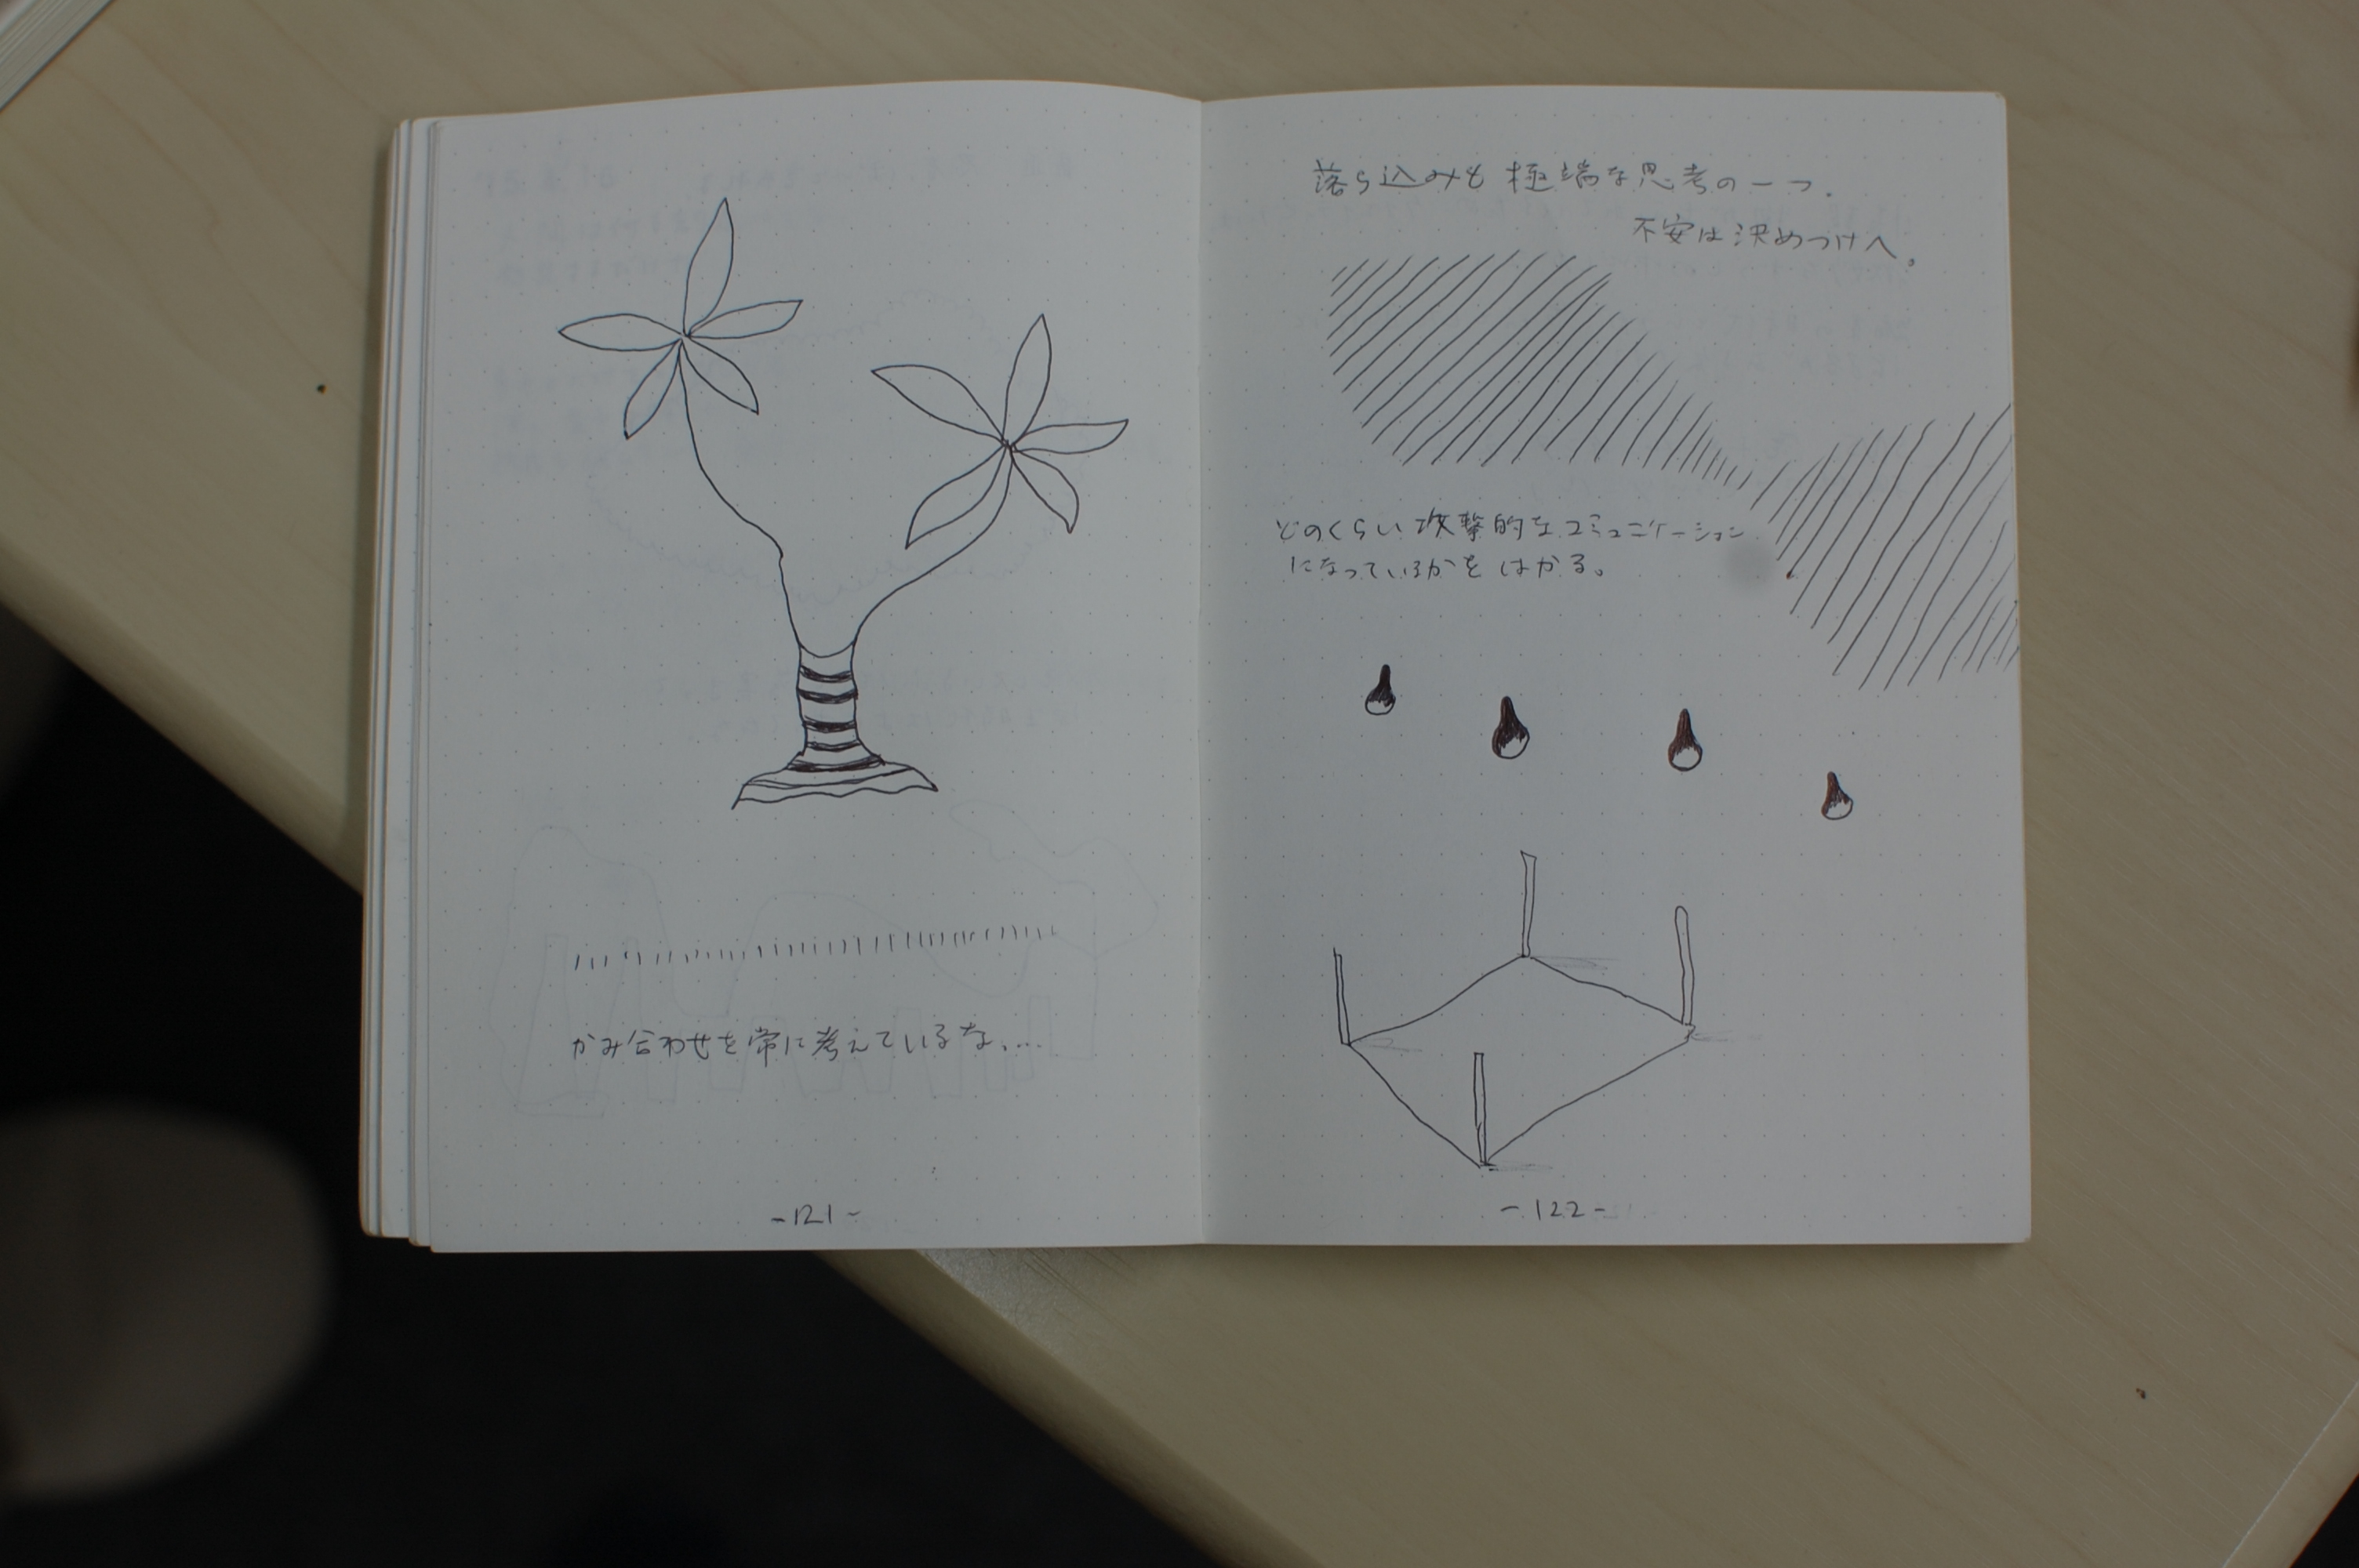 かみ合わせを常に考えているな、...
-121-
落ち込みも極端な思考の一つ.
不安は決めつけへ。
どのくらい攻撃的なコミュニケーション
になっているかをはかる。
-122-